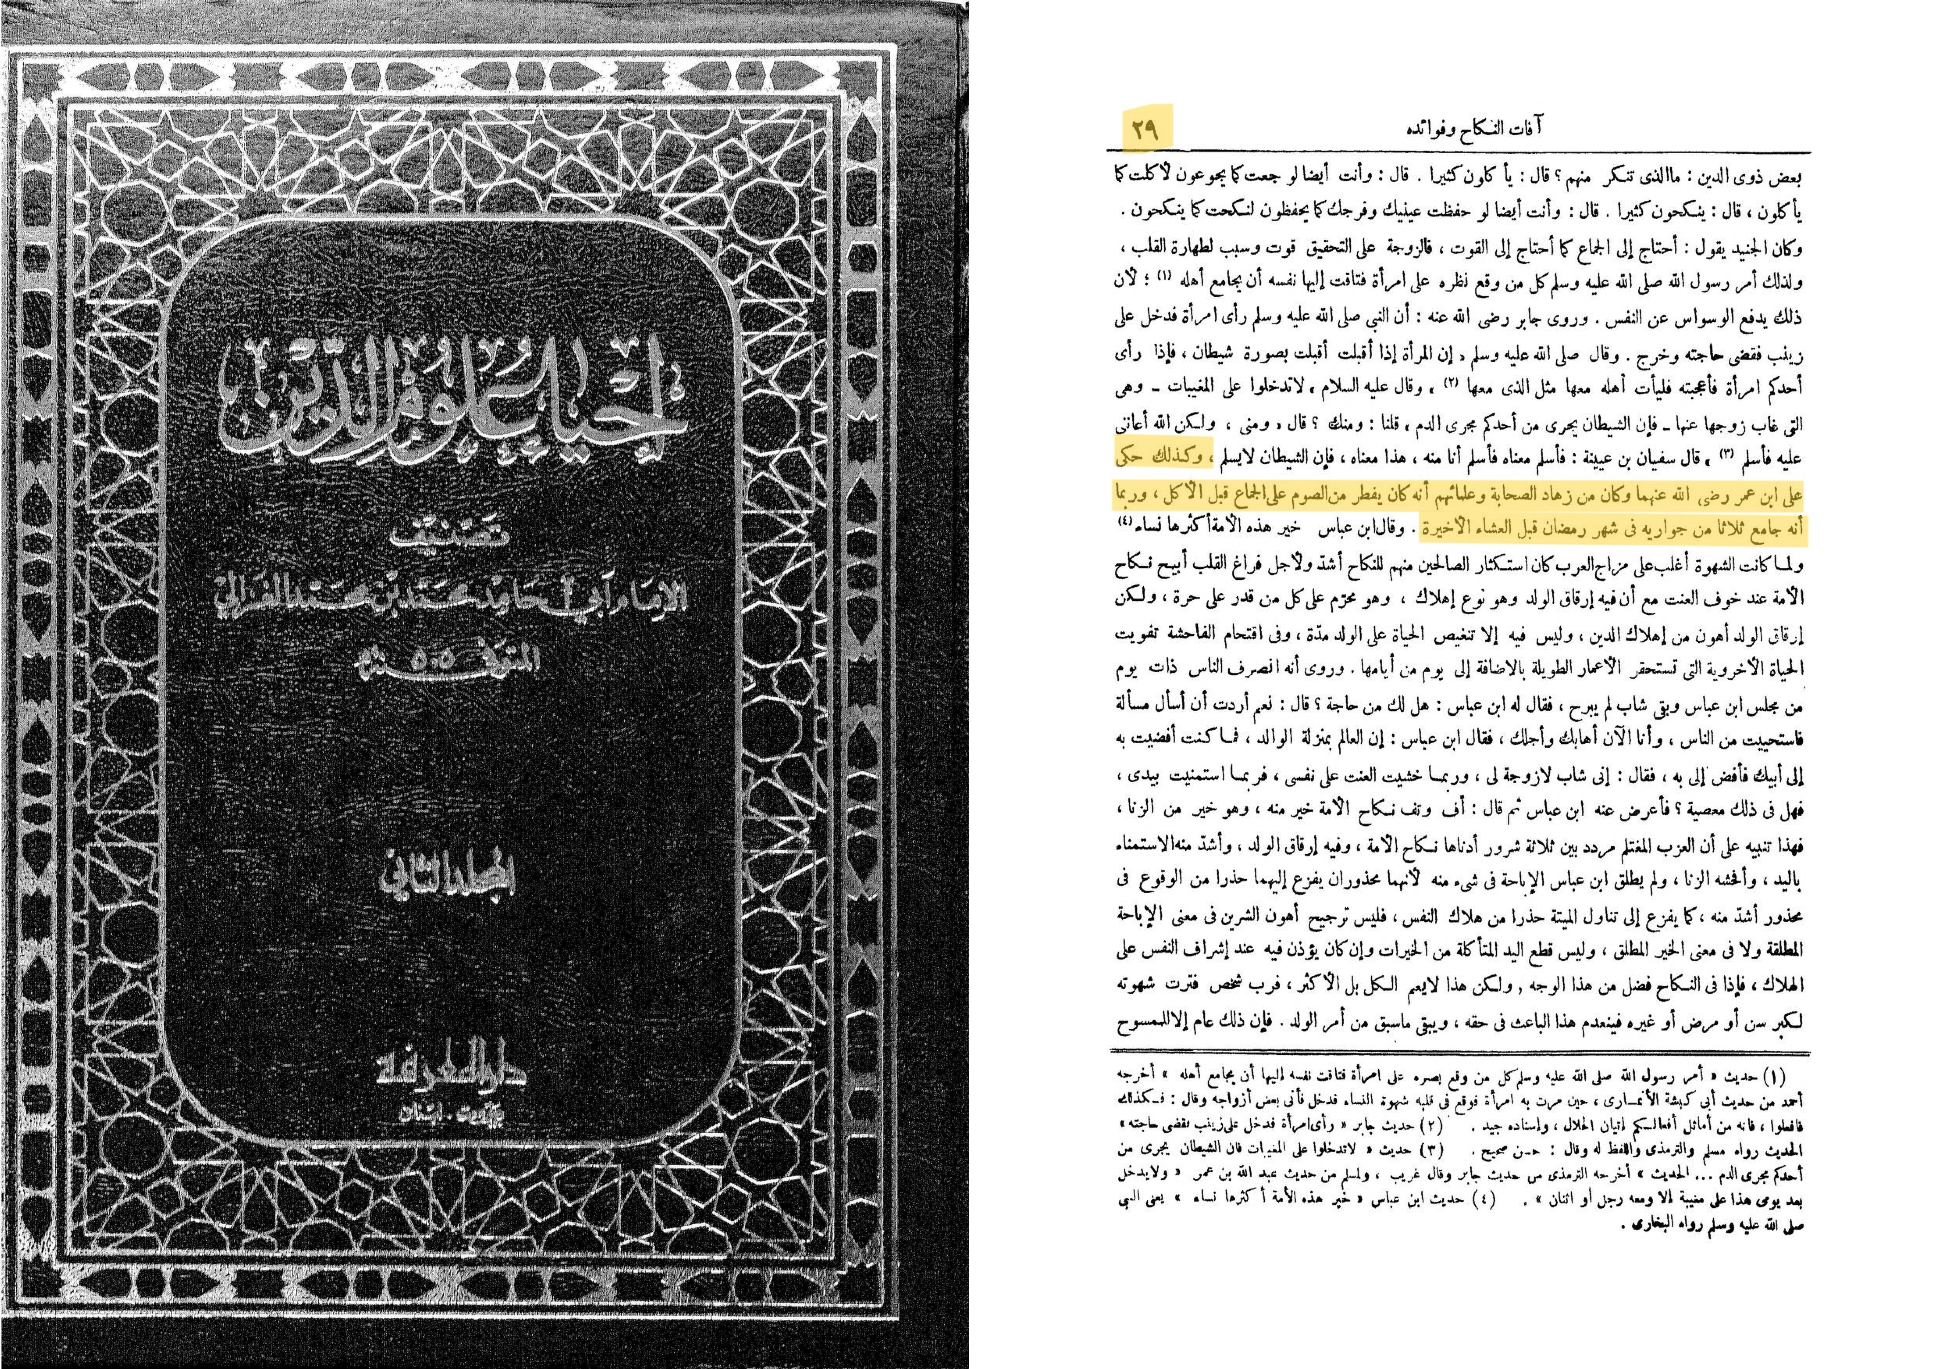 إحياء علوم الدين
تصنيف
الإمام أبي حامد محمد بن محمد الغزالي
المتوفى ٥٠٥ سنة
المجلد الثاني
دار المعرفة
بيروت - لبنان
٢٩
آفات النكاح وفوائده
بعض ذوى الدين : ما الذى تنكر منهم ؟ قال : يأكلون كثيرا . قال : وأنت أيضا لو جعت كما يجوعون لأكلت كما
يأكلون ، قال : ينكحون كثيرا . قال : وأنت أيضا لو حفظت عينيك وفرجك كما يحفظون لنكحت كما ينكحون .
وكان الجنيد يقول : أحتاج إلى الجماع كما أحتاج إلى القوت ، فالزوجة على التحقيق قوت وسبب لطهارة القلب ،
ولذلك أمر رسول الله صلى الله عليه وسلم كل من وقع نظره على امرأة فتاقت إليها نفسه أن يجامع أهله (١) ؛ لأن
ذلك يدفع الوسواس عن النفس . وروى جابر رضى الله عنه : أن النبي صلى الله عليه وسلم رأى امرأة فدخل على
زينب فقضى حاجته وخرج . وقال صلى الله عليه وسلم « إن المرأة إذا أقبلت أقبلت بصورة شيطان ، فإذا رأى
أحدكم امرأة فأعجبته فليأت أهله معها مثل الذى معها (٢) » وقال عليه السلام « لاتدخلوا على المغيبات ــ وهى
التى غاب زوجها عنها ــ فإن الشيطان يجرى من أحدكم مجرى الدم » قلنا : ومنك ؟ قال « ومنى ، ولكن الله أعاننى
عليه فأسلم (٣) » قال سفيان بن عيينة : فأسلم معناه فأسلم أنا منه ، هذا معناه ، فإن الشيطان لايسلم ، وكذلك حكى
على ابن عمر رضى الله عنهما وكان من زهاد الصحابة وعلمائهم أنه كان يفطر من الصوم على الجماع قبل الأكل ، وربما
أنه جامع ثلاثا من جواريه فى شهر رمضان قبل العشاء الأخيرة . وقال ابن عباس خير هذه الأمة أكثرها نساء (٤)
ولما كانت الشهوة أغلب على مزاج العرب كان استكثار الصالحين منهم للنكاح أشد ولأجل فراغ القلب أبيح نكاح
الأمة عند خوف العنت مع أن فيه إرقاق الولد وهو نوع إهلاك ، وهو محرّم على كل من قدر على حرة ، ولكن
إرقاق الولد أهون من إهلاك الدين ، وليس فيه إلا تنغيص الحياة على الولد مدّة ، وفى اقتحام الفاحشة تفويت
الحياة الأخروية التى تستحقر الأعمار الطويلة بالاضافة إلى يوم من أيامها . وروى أنه انصرف الناس ذات يوم
من مجلس ابن عباس وبقى شاب لم يبرح ، فقال له ابن عباس : هل لك من حاجة ؟ قال : نعم أردت أن أسأل مسألة
فاستحييت من الناس ، وأنا الآن أهابك وأجلك ، فقال ابن عباس : إن العالم بمنزلة الوالد ، فما كنت أفضيت به
إلى أبيك فأفض إلى به ، فقال : إنى شاب لازوجة لى ، وربما خشيت العنت على نفسى ، فربما استمنيت بيدى ،
فهل فى ذلك معصية ؟ فأعرض عنه ابن عباس ثم قال : أف وتف نكاح الأمة خير منه ، وهو خير من الزنا ،
فهذا تنبيه على أن العزب المغتلم مردد بين ثلاثة شرور أدناها نكاح الأمة ، وفيه إرقاق الولد ، وأشدّ منه الاستمناء
باليد ، وأفحشه الزنا ، ولم يطلق ابن عباس الإباحة فى شىء منه لأنهما محذوران يفزع إليهما حذرا من الوقوع فى
محذور أشدّ منه ، كما يفزع إلى تناول الميتة حذرا من هلاك النفس ، فليس ترجيح أهون الشرين فى معنى الإباحة
المطلقة ولا فى معنى الخير المطلق ، وليس قطع اليد المتأكلة من الخيرات وإن كان يؤذن فيه عند إشراف النفس على
الهلاك ، فإذا فى النكاح فضل من هذا الوجه , ولكن هذا لايعم الكل بل الأكثر ، فرب شخص فترت شهوته
لكبر سن أو مرض أو غيره فينعدم هذا الباعث فى حقه ، ويبقى ماسبق من أمر الولد . فإن ذلك عام إلا للممسوح
(١) حديث « أمر رسول الله صلى الله عليه وسلم كل من وقع بصره على امرأة فتاقت نفسه إليها أن يجامع أهله » أخرجه
أحمد من حديث أبى كبشة الأنمارى ، حين مرت به امرأة فوقع فى قلبه شهوة النساء فدخل فأتى بعض أزواجه وقال : فكذلك
فافعلوا ، فانه من أماثل أفعالكم إتيان الحلال ، وإسناده جيد . (٢) حديث جابر « رأى امرأة فدخل على زينب فقضى حاجته »
الحديث رواه مسلم والترمذى واللفظ له وقال : حسن صحيح . (٣) حديث « لاتدخلوا على المغيبات فان الشيطان يجرى من
أحدكم مجرى الدم ... الحديث » أخرجه الترمذى من حديث جابر وقال غريب ، ولمسلم من حديث عبد الله بن عمر « ولايدخل
بعد يومى هذا على مغيبة إلا ومعه رجل أو اثنان » . (٤) حديث ابن عباس « خير هذه الأمة أكثرها نساء » يعنى النبى
صلى الله عليه وسلم رواه البخارى .